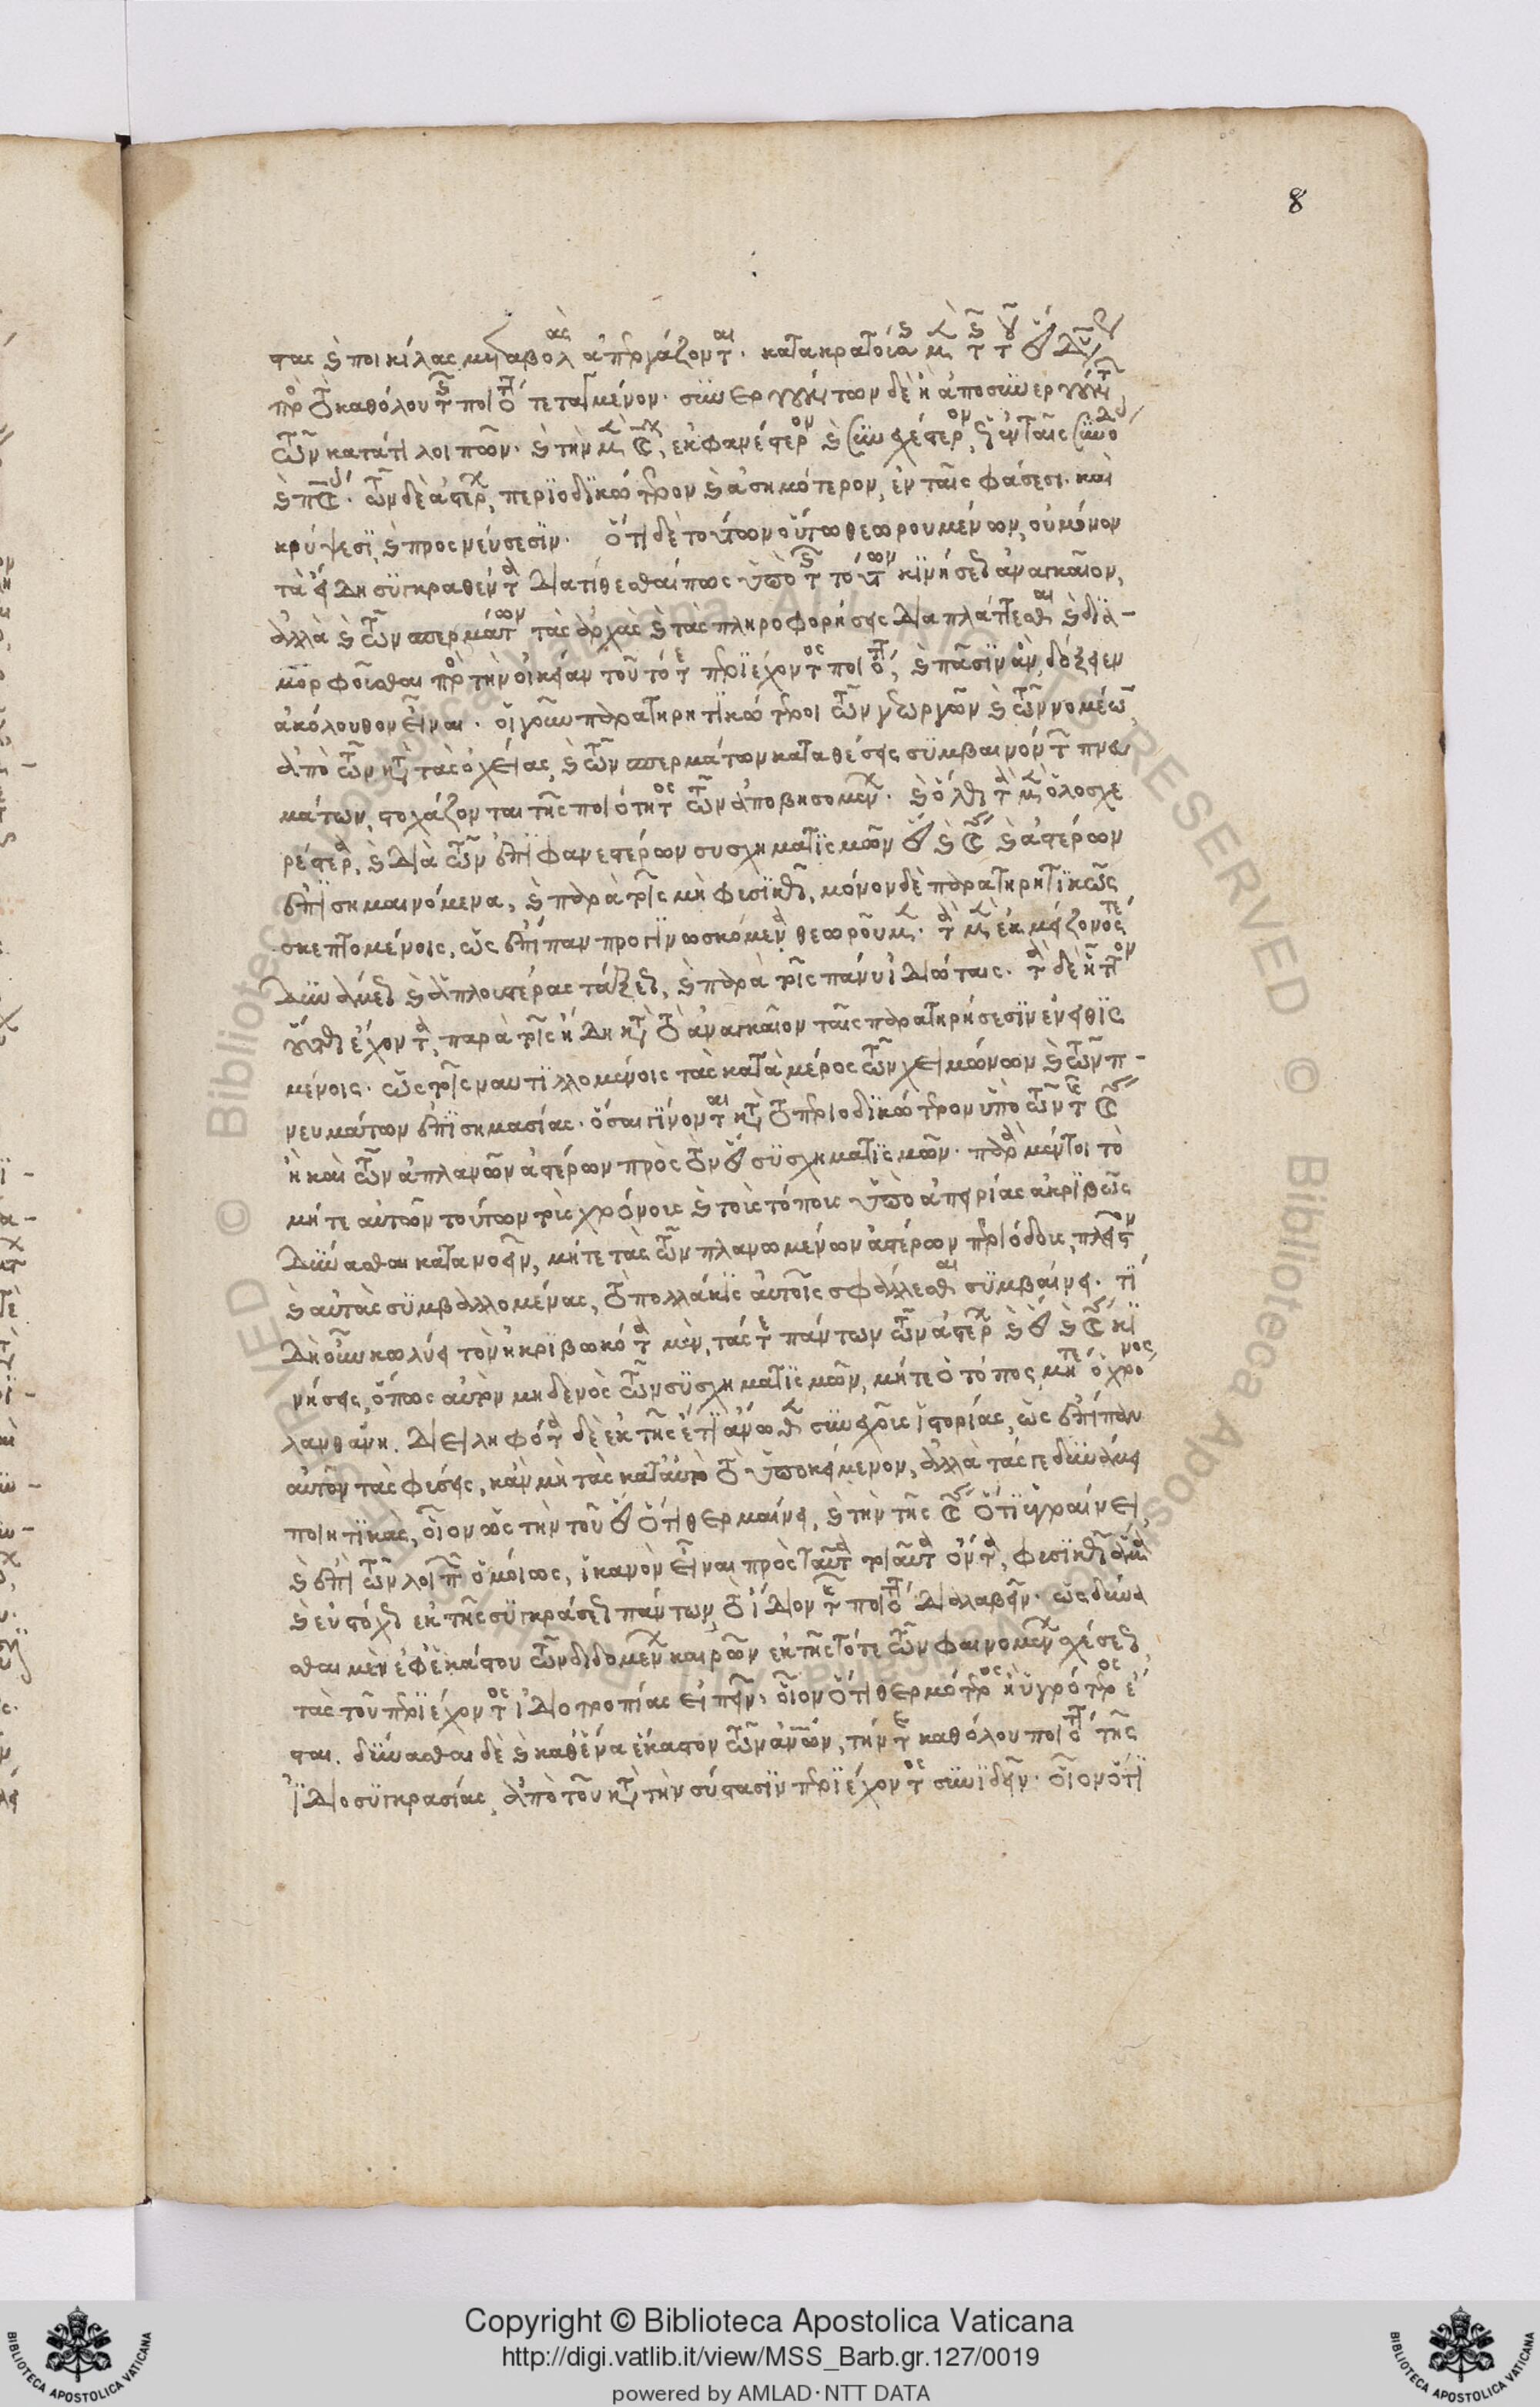 8
στας καὶ ποικίλας μεταβολὰς ἀπεργάζονται. κατακρατούσης μέντοι τῆς τοῦ ☉ δυνάμεως
πρὸς τὸ καθόλου τῆς ποιότητος τεταγμένον. συνεργούντων δὲ ἢ ἀποσυνεργούντων
τῶν κατά τι λοιπῶν. καὶ τῆν μὲν ☾, ἐκφανέστερον καὶ συνεχέστερον, ὡς ἐν ταῖς συνόδοις
καὶ π☾. τῶν δὲ ἀστέρων, περιοδικώτερον καὶ ἀσημότερον, ἐν ταῖς φάσεσι. καὶ
κρύψεσι, καὶ προσνεύσεσιν. ὅτι δὲ τούτων οὕτω θεωρουμένων, οὐ μόνον
τὰ ἤδη συγκραθέντα διατίθεσθαί πως ὑπὸ τῆς τούτων κινήσεως ἀναγκαῖον,
ἀλλὰ καὶ τῶν σπερμάτων τὰς ἀρχὰς καὶ τὰς πληροφορήσεις διαπλάττεσθαι καὶ δια-
μορφοῦσθαι πρὸς τὴν οἰκείαν τοῦ τότε περιέχοντος ποιότητα, καὶ πᾶσιν ἂν, δόξειεν
ἀκόλουθον εἶναι. οἱ γοῦν παρατηρητικώτεροι τῶν γεωργῶν καὶ τῶν νομέων
ἀπὸ τῶν κατὰ τὰς ὀχείας, καὶ τῶν σπερμάτων καταθέσεις συμβαινόντων πνευ
μάτων, στοχάζονται τῆς ποιότητος τῶν ἀποβησομένων. καὶ ὅλως τὰ μὲν ὁλοσχε
ρέστερα, καὶ διὰ τῶν ἐπιφανεστέρων συσχηματισμῶν ☉ καὶ ☾ καὶ ἀστέρων
ἐπισημαινόμενα, καὶ παρὰ τοῖς μὴ φυσικῶς, μόνον δὲ παρατηρητικῶς
σκεπτομένοις, ὡς ἐπίπαν προγινωσκόμενα θεωροῦμεν. τὰ μὲν ἐκ μείζονός τε
δυνάμεως καὶ ἁπλουστέρας τάξεως, καὶ παρὰ τοῖς πάνυ ἰδιώταις. τὰ δὲ ἧττον
οὕτως ἔχοντα, παρὰ τοῖς ἤδη κατὰ τὸ ἀναγκαῖον ταῖς παρατηρήσεσιν ἐνειθισ
μένοις. ὡς τοῖς ναυτιλλομένοις τὰς κατὰ μέρος τῶν χειμώνων καὶ τῶν π-
νευμάτων ἐπισημασίας. ὅσαι γίνονται κατὰ τὸ περιοδικώτερον ὑπὸ τῶν τῆς ☾
ἢ καὶ τῶν ἀπλανῶν ἀστέρων πρὸς τὸν ☉ συσχηματισμῶν. παρὰ μέντοι τὸ
μήτε αὐτῶν τούτων τοὺς χρόνους καὶ τοὺς τόπους ὑπὸ ἀπειρίας ἀκριβῶς
δύνασθαι κατανοεῖν, μήτε τὰς τῶν πλανωμένων ἀστέρων περιόδους, πλεῖστον
καὶ αὐτὰς συμβαλλομένας, τὸ πολλάκις αὐτοῖς σφάλλεσθαι συμβαίνει. τί
δὴ οὖν κωλύει τὸν ἠκριβωκότα μὲν, τάς τε πάντων τῶν ἀστέρων καὶ ☉ καὶ ☾ κι
νήσεις, ὅπως αὐτὸν μηδενὸς τῶν συσχηματισμῶν, μήτε ὁ τόπος, μήτε ὁ χρόνος
λανθάνῃ. διειληφότα δὲ ἐκ τῆς ἔτι ἄνωθεν συνεχοῦς ἱστορίας, ὡς ἐπίπαν
αὐτῶν τὰς φύσεις, κἂν μὴ τὰς κατ' αὐτὸ τὸ ὑποκείμενον, ἀλλὰ τάς γε δυνάμει
ποιητικὰς, οἷον ὡς τὴν τοῦ ☉ ὅτι θερμαίνει, καὶ τὴν τῆς ☾ ὅτι ὑγραίνει,
καὶ ἐπὶ τῶν λοιπῶν ὁμοίως, ἱκανὸν εἶναι πρὸς ταῦτα τοιαῦτα ὄντα, φυσικῶς ἅμα
καὶ εὐστόχως ἐκ τῆς συγκράσεως πάντων, τὸ ἴδιον τῆς ποιότητος διαλαβεῖν. ὡς δύνα
σθαι μὲν ἐφ' ἑκάστου τῶν διδομένων καιρῶν ἐκ τῆς τότε τῶν φαινομένων σχέσεως,
τὰς τοῦ περιέχοντος ἰδιοτροπίας εἰπεῖν, οἷον ὅτι θερμότερος ἢ ὑγρότερος ἔ
σται. δύνασθαι δὲ καὶ καθ' ἕνα ἕκαστον τῶν ἀνθρώπων, τήν τε καθόλου ποιότητα τῆς
ἰδιοσυγκρασίας, ἀπὸ τοῦ κατὰ τὴν σύστασιν περιέχοντος συνιδεῖν. οἷον ὅτι
Copyright © Biblioteca Apostolica Vaticana
http://digi.vatlib.it/view/MSS_Barb.gr.127/0019
powered by AMLAD·NTT DATA